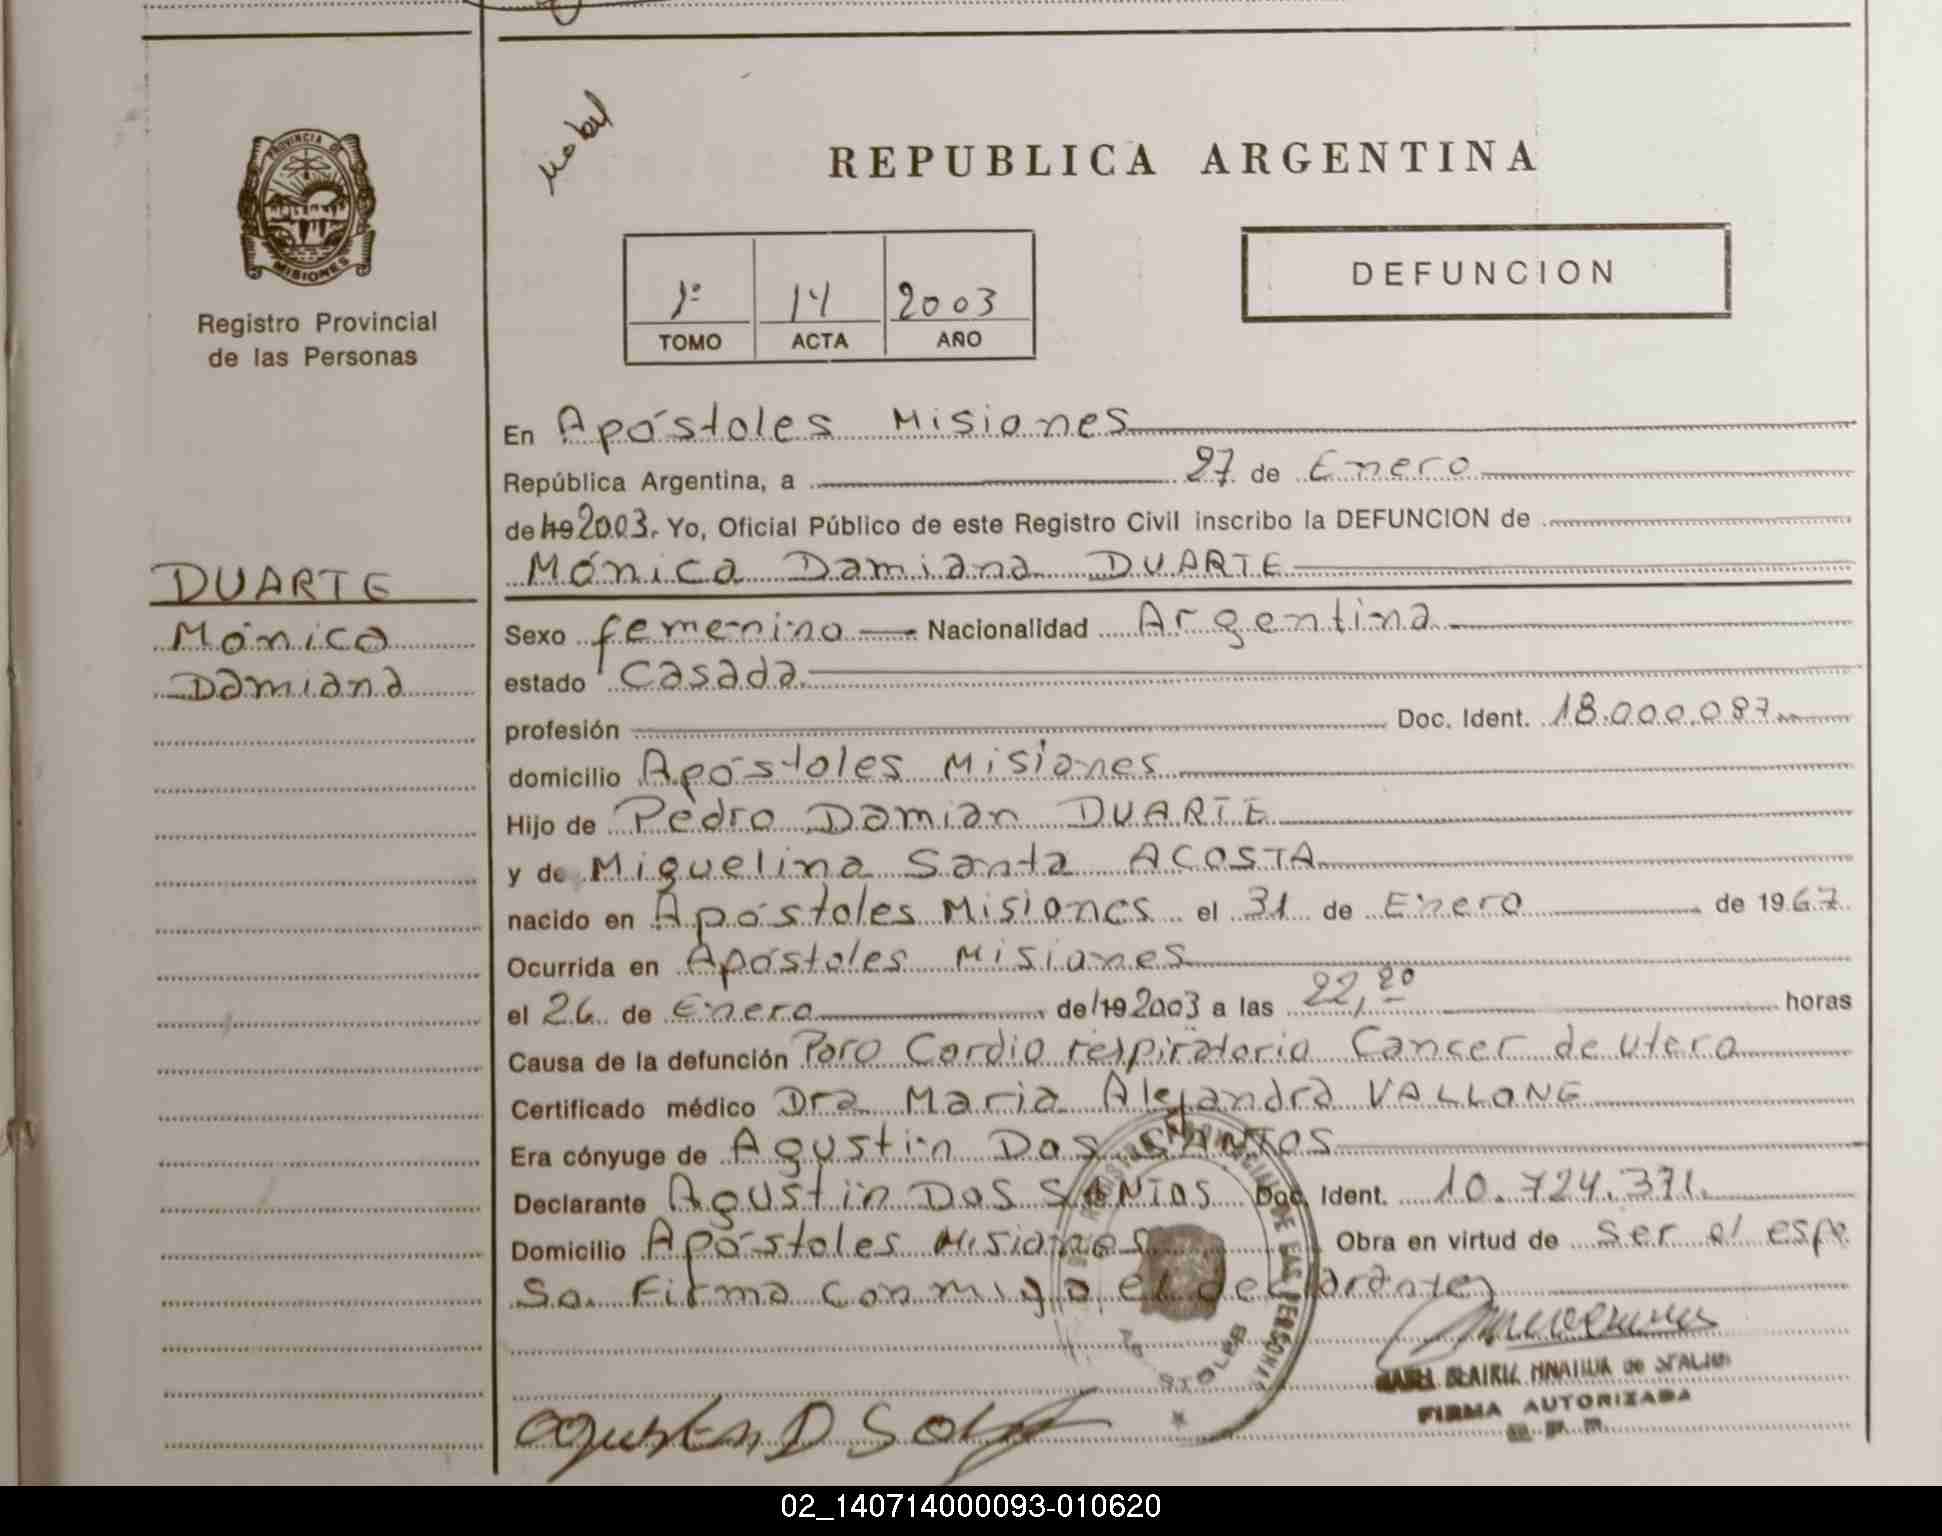 PROVINCIA DE
MISIONES
Registro Provincial
de las Personas
DUARTE
Mónica
Damiana
REPUBLICA ARGENTINA
1º 14 2003
TOMO ACTA AÑO
DEFUNCION
En Apóstoles Misiones
República Argentina, a 27 de Enero
de 19 2003. Yo, Oficial Público de este Registro Civil inscribo la DEFUNCION de
Mónica Damiana DUARTE
Sexo femenino Nacionalidad Argentina
estado Casada
profesión Doc. Ident. 18.000.087
domicilio Apóstoles Misiones
Hijo de Pedro Damian DUARTE
y de Miguelina Santa ACOSTA
nacido en Apóstoles Misiones el 31 de Enero de 1967
Ocurrida en Apóstoles Misiones
el 26 de Enero de 19 2003 a las 22,20 horas
Causa de la defunción Paro Cardio respiratorio Cancer de utero
Certificado médico Dra Maria Alejandra VALLONE
Era cónyuge de Agustin Dos SANTOS
Declarante Agustin DOS SANTOS Doc. Ident. 10.724.371.
Domicilio Apóstoles Misiones Obra en virtud de ser el espo
so. Firma conmigo el declarante
REGISTRO PROVINCIAL DE LAS PERSONAS
APOSTOLES
FIRMA AUTORIZADA
02_140714000093-010620